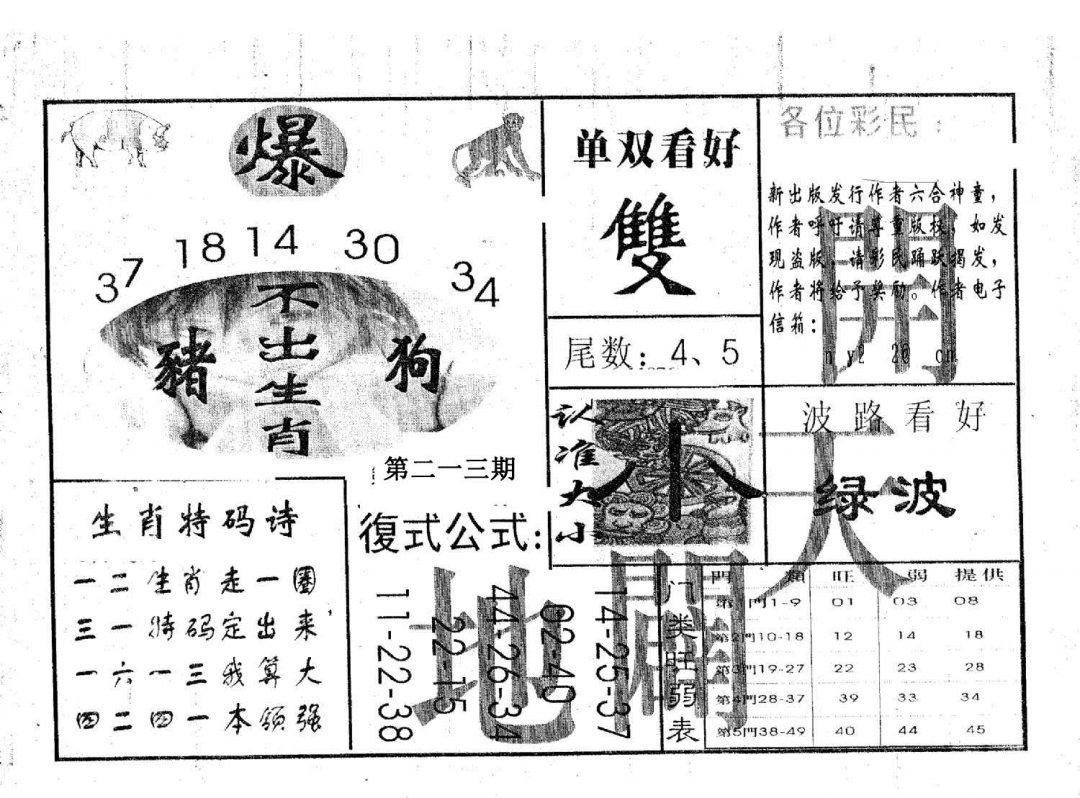 爆
37 18 14 30 34
不出生肖
豬
狗
第二一三期
单双看好
雙
尾数：4、5
认准大小
小
各位彩民：
新出版发行作者六合神童，
作者呼吁请尊重版权，如发
现盗版，请彩民踊跃揭发，
作者将给予奖励。作者电子
信箱：
開
波路看好
绿波
天
生肖特码诗
一二生肖走一圈
三一特码定出来，
一六一三我算大
四二四一本领强
復式公式：
11-22-38
22-15
44-26-34
02-40
14-25-37
地
開
门类旺弱表
門 類 旺 弱 提供
第1門1-9 01 03 08
第2門10-18 12 14 18
第3門19-27 22 23 28
第4門28-37 39 33 34
第5門38-49 40 44 45